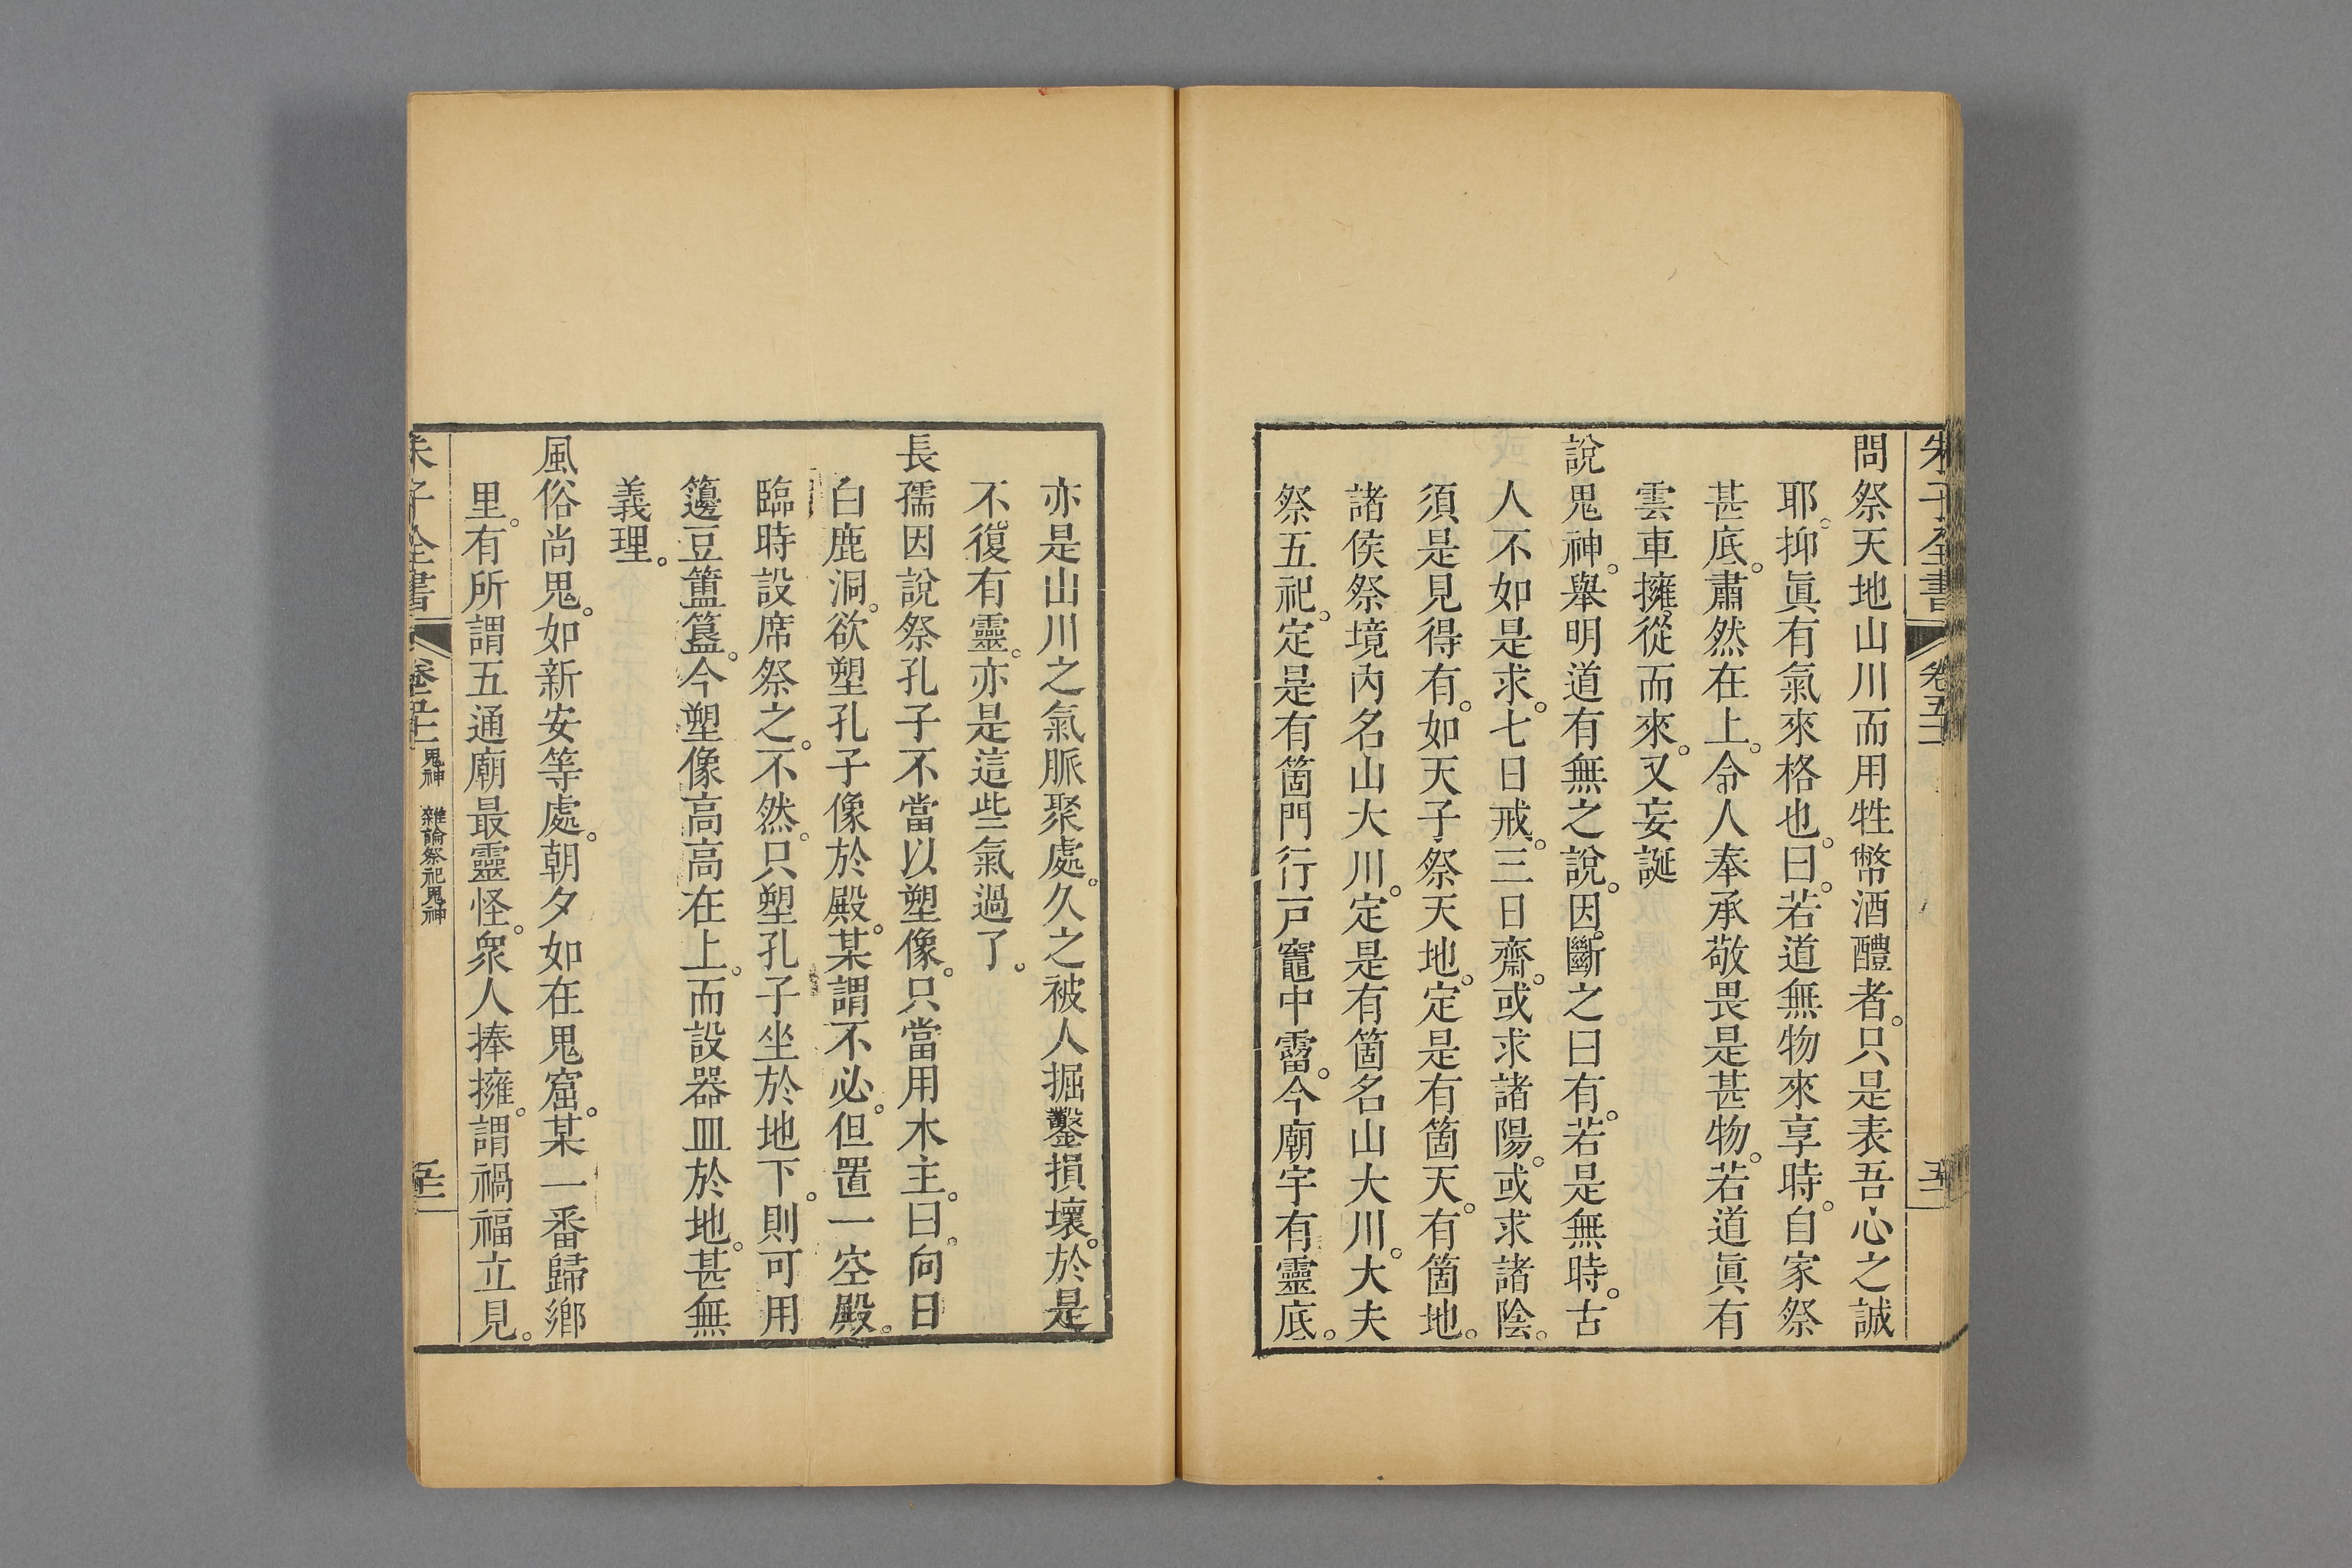 朱子全書 卷五十一
問祭天地山川而用牲幣酒醴者。只是表吾心之誠
耶。抑眞有氣來格也。曰。若道無物來享時。自家祭
甚底。肅然在上。令人奉承敬畏是甚物。若道眞有
雲車擁從而來。又妄誕
說鬼神。舉明道有無之說。因斷之曰有。若是無時。古
人不如是求。七日戒。三日齋。或求諸陽。或求諸陰。
須是見得有。如天子祭天地。定是有箇天。有箇地。
諸侯祭境內名山大川。定是有箇名山大川。大夫
祭五祀。定是有箇門行戸竈中霤。今廟宇有靈底。
亦是山川之氣脈聚處。久之被人掘鑿損壞。於是
不復有靈。亦是這些氣過了。
長孺因說祭孔子不當以塑像。只當用木主。曰。向日
白鹿洞。欲塑孔子像於殿。某謂不必。但置一空殿。
臨時設席祭之。不然。只塑孔子坐於地下。則可用
籩豆簠簋。今塑像高高在上。而設器皿於地。甚無
義理。
風俗尚鬼。如新安等處。朝夕如在鬼窟。某一番歸鄉
里。有所謂五通廟最靈怪。衆人捧擁。謂禍福立見。
朱子全書 卷五十一 鬼神 雜論祭祀鬼神